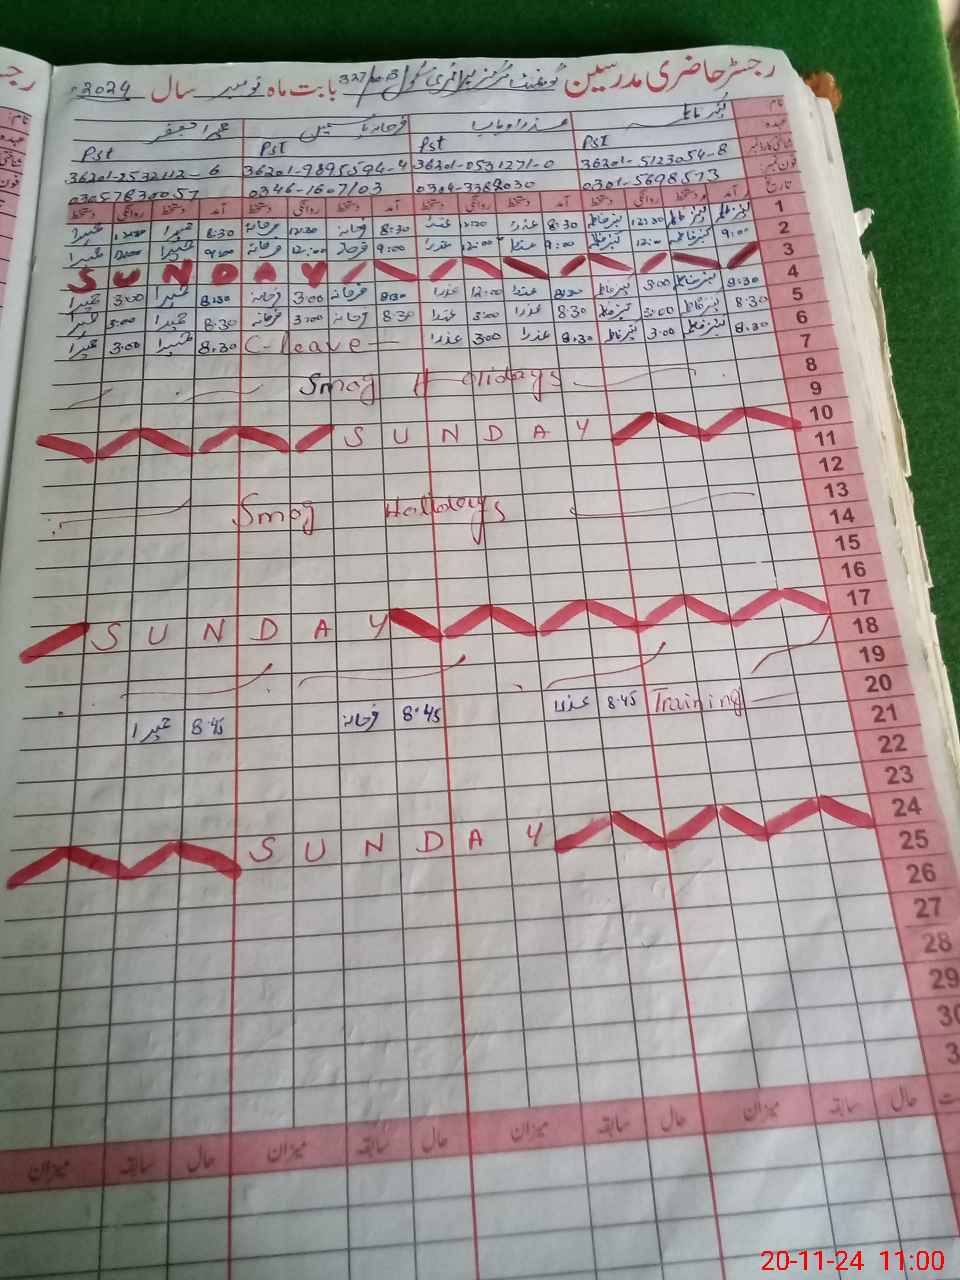 رجسٹر حاضری مدرسین گورنمنٹ گرلز پرائمری سکول 327 بابت ماہ نومبر سال 2024
نام
عہدہ Pst Pst Pst Pst
شناختی کارڈ نمبر 36201-5123054-8 36201-0531271-0 36201-9895594-4 36201-2532112-6
فون نمبر 0301-5698573 0304-3388030 0346-1607103 03057830057
تاریخ آمد دستخط روانگی دستخط آمد دستخط روانگی دستخط آمد دستخط روانگی دستخط آمد دستخط روانگی دستخط
1 12:30 8:30 عذرا 12:30 عذرا 8:30 فرحانہ 12:30 فرحانہ 8:30 حمیرا 12:30 حمیرا
2 9:00 12:00 9:00 عذرا 12:00 عذرا 9:00 فرحانہ 12:00 فرحانہ 9:00 حمیرا 12:00 حمیرا
3 SUNDAY
4 8:30 3:00 8:30 عذرا 12:00 عذرا 8:30 فرحانہ 3:00 فرحانہ 8:30 حمیرا 3:00 حمیرا
5 8:30 3:00 8:30 عذرا 3:00 عذرا 8:30 فرحانہ 3:00 فرحانہ 8:30 حمیرا 3:00 حمیرا
6 8:30 3:00 8:30 عذرا 3:00 عذرا C-leave 8:30 حمیرا 3:00 حمیرا
7
8 Smog Holidays
9
10 SUNDAY
11
12
13 Smog Hollidays
14
15
16
17 SUNDAY
18
19
20 Training 8:45 عذرا 8:45 فرحانہ 8:45 حمیرا
21
22
23
24 SUNDAY
25
26
27
28
29
30
3
حال سابقہ میزان حال سابقہ میزان حال سابقہ میزان حال سابقہ میزان
20-11-24 11:00